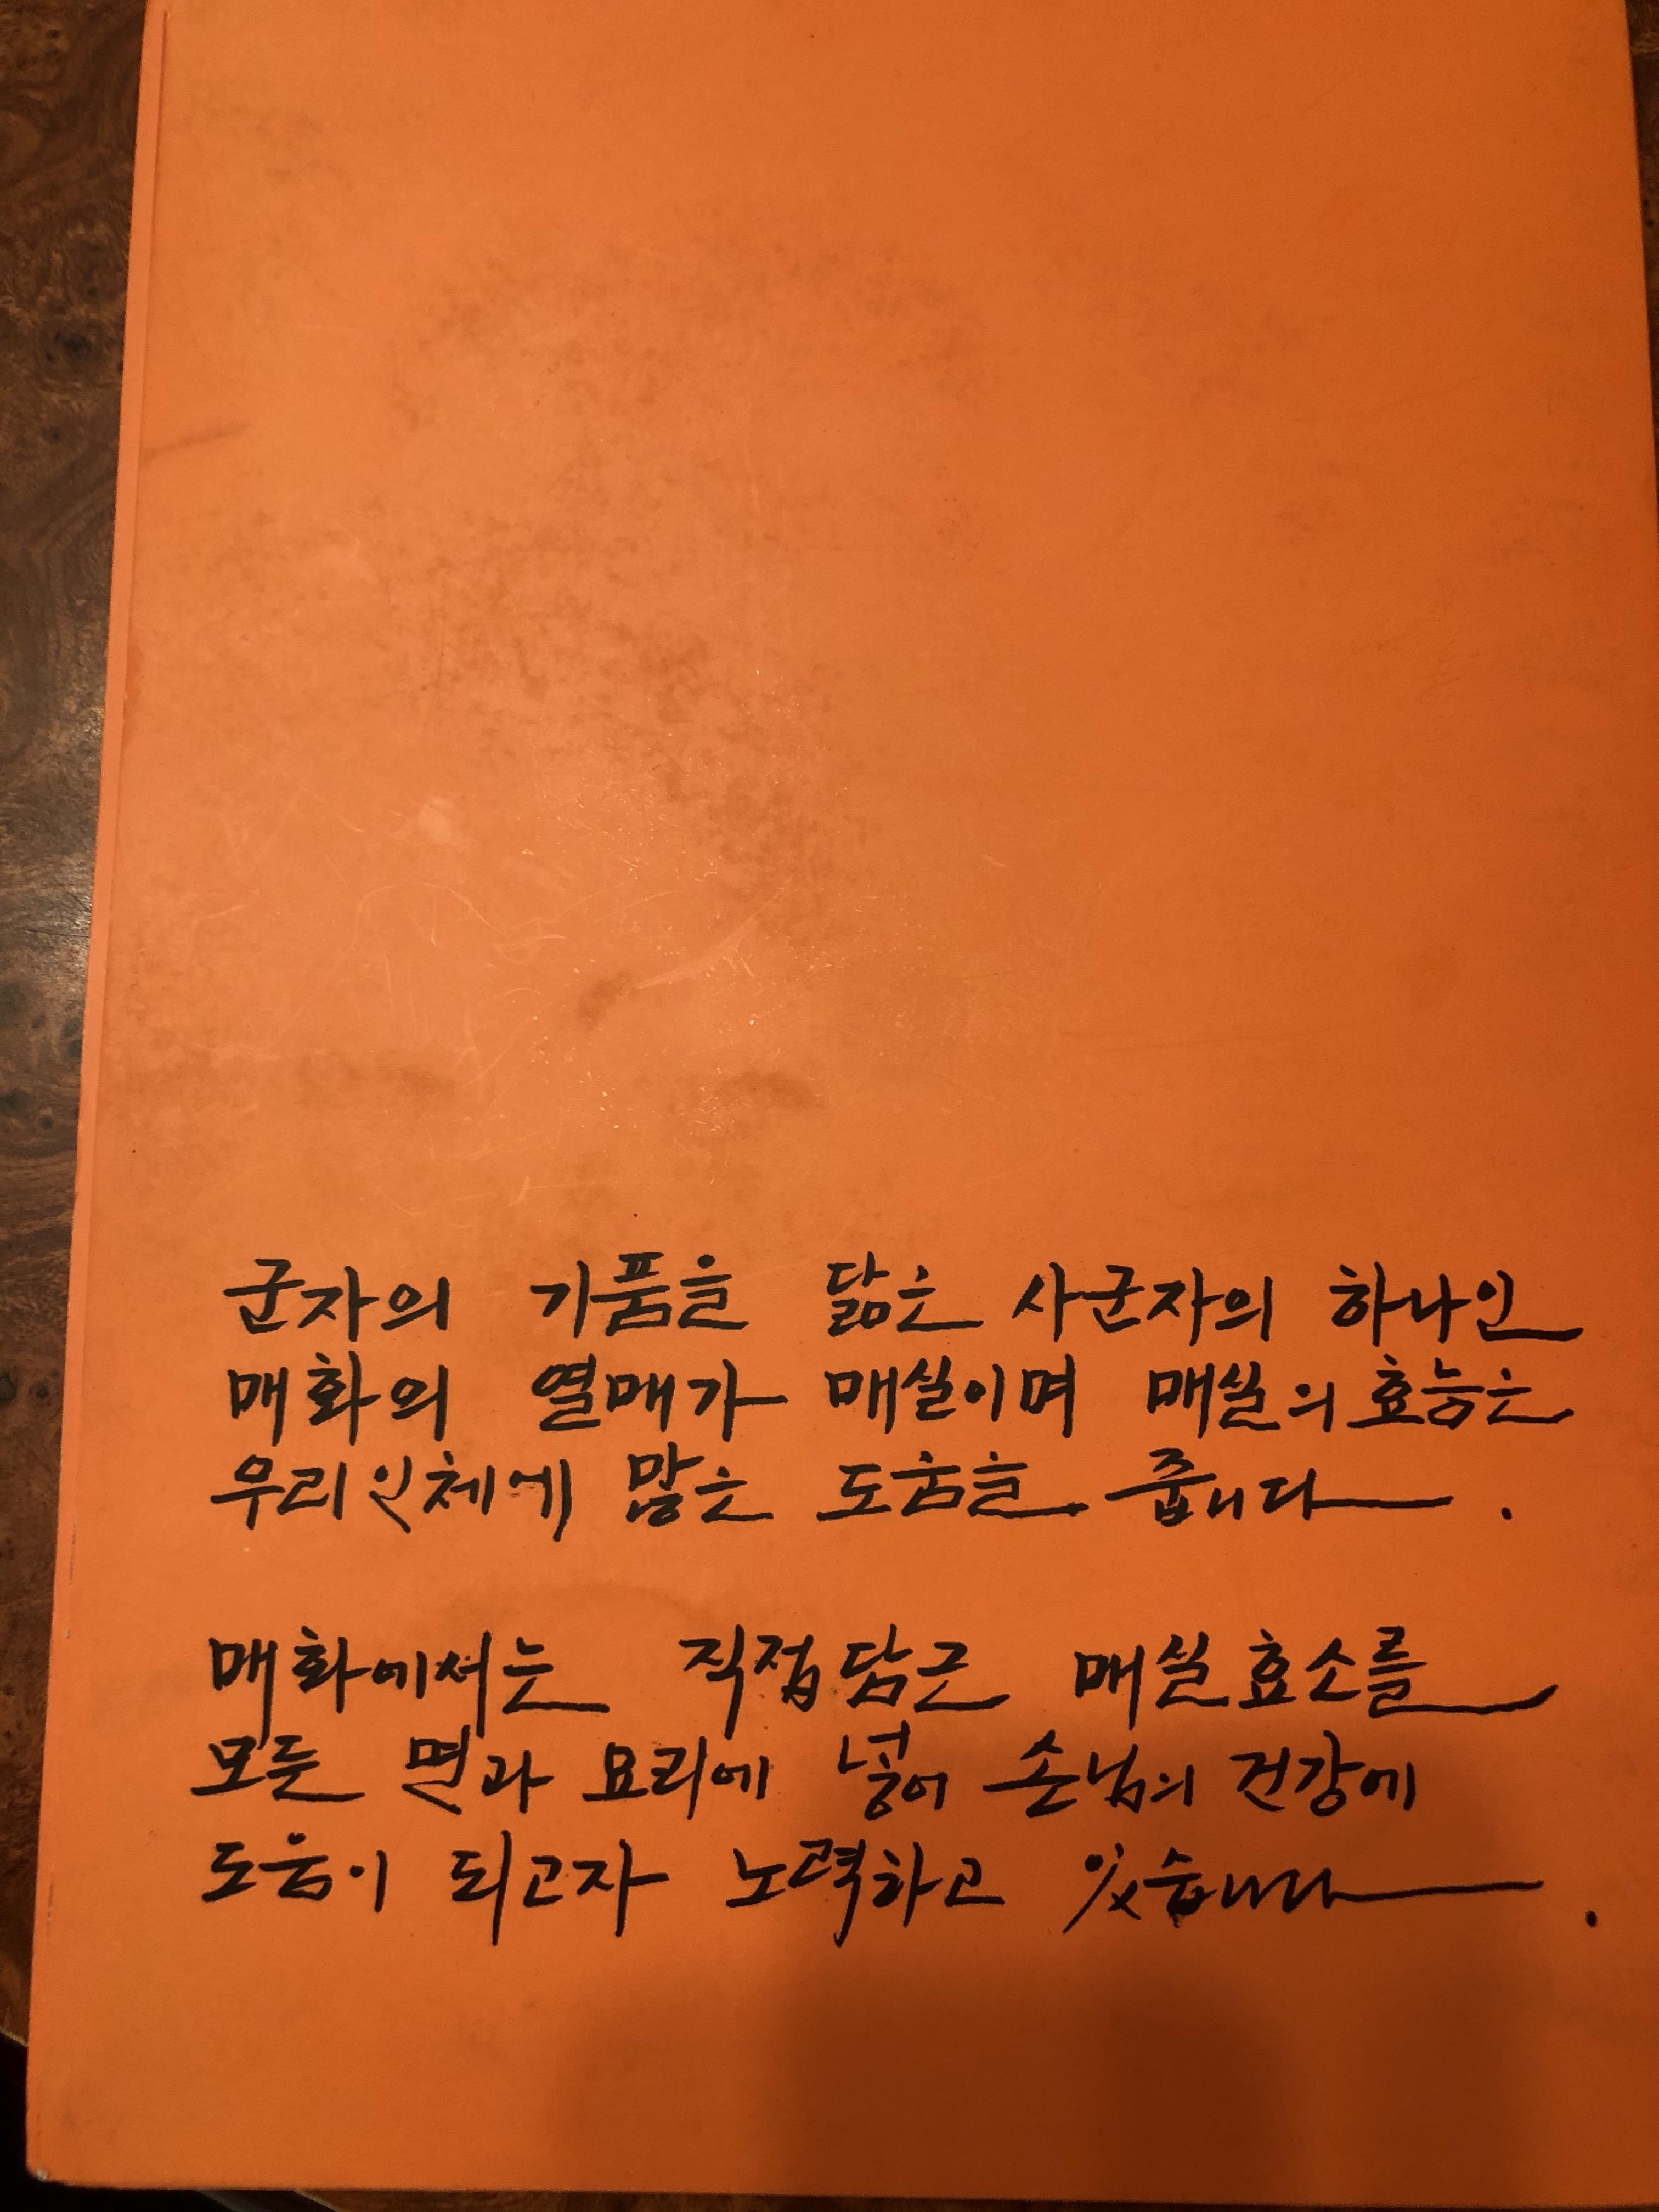 군자의 기품을 닮은 사군자의 하나인
매화의 열매가 매실이며 매실의 효능은
우리 인체에 많은 도움을 줍니다.
매화에서는 직접 담근 매실 효소를
모든 면과 요리에 넣어 손님의 건강에
도움이 되고자 노력하고 있습니다.